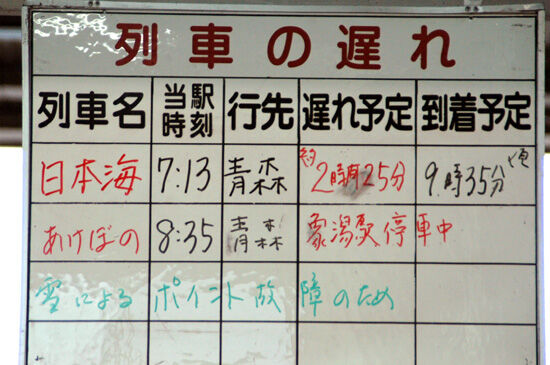 列車の遅れ
列車名 当駅時刻 行先 遅れ予定 到着予定
日本海 7:13 青森 約2時間25分 9時35分頃
あけぼの 8:35 青森 象潟駅停車中
雪によるポイント故障のため